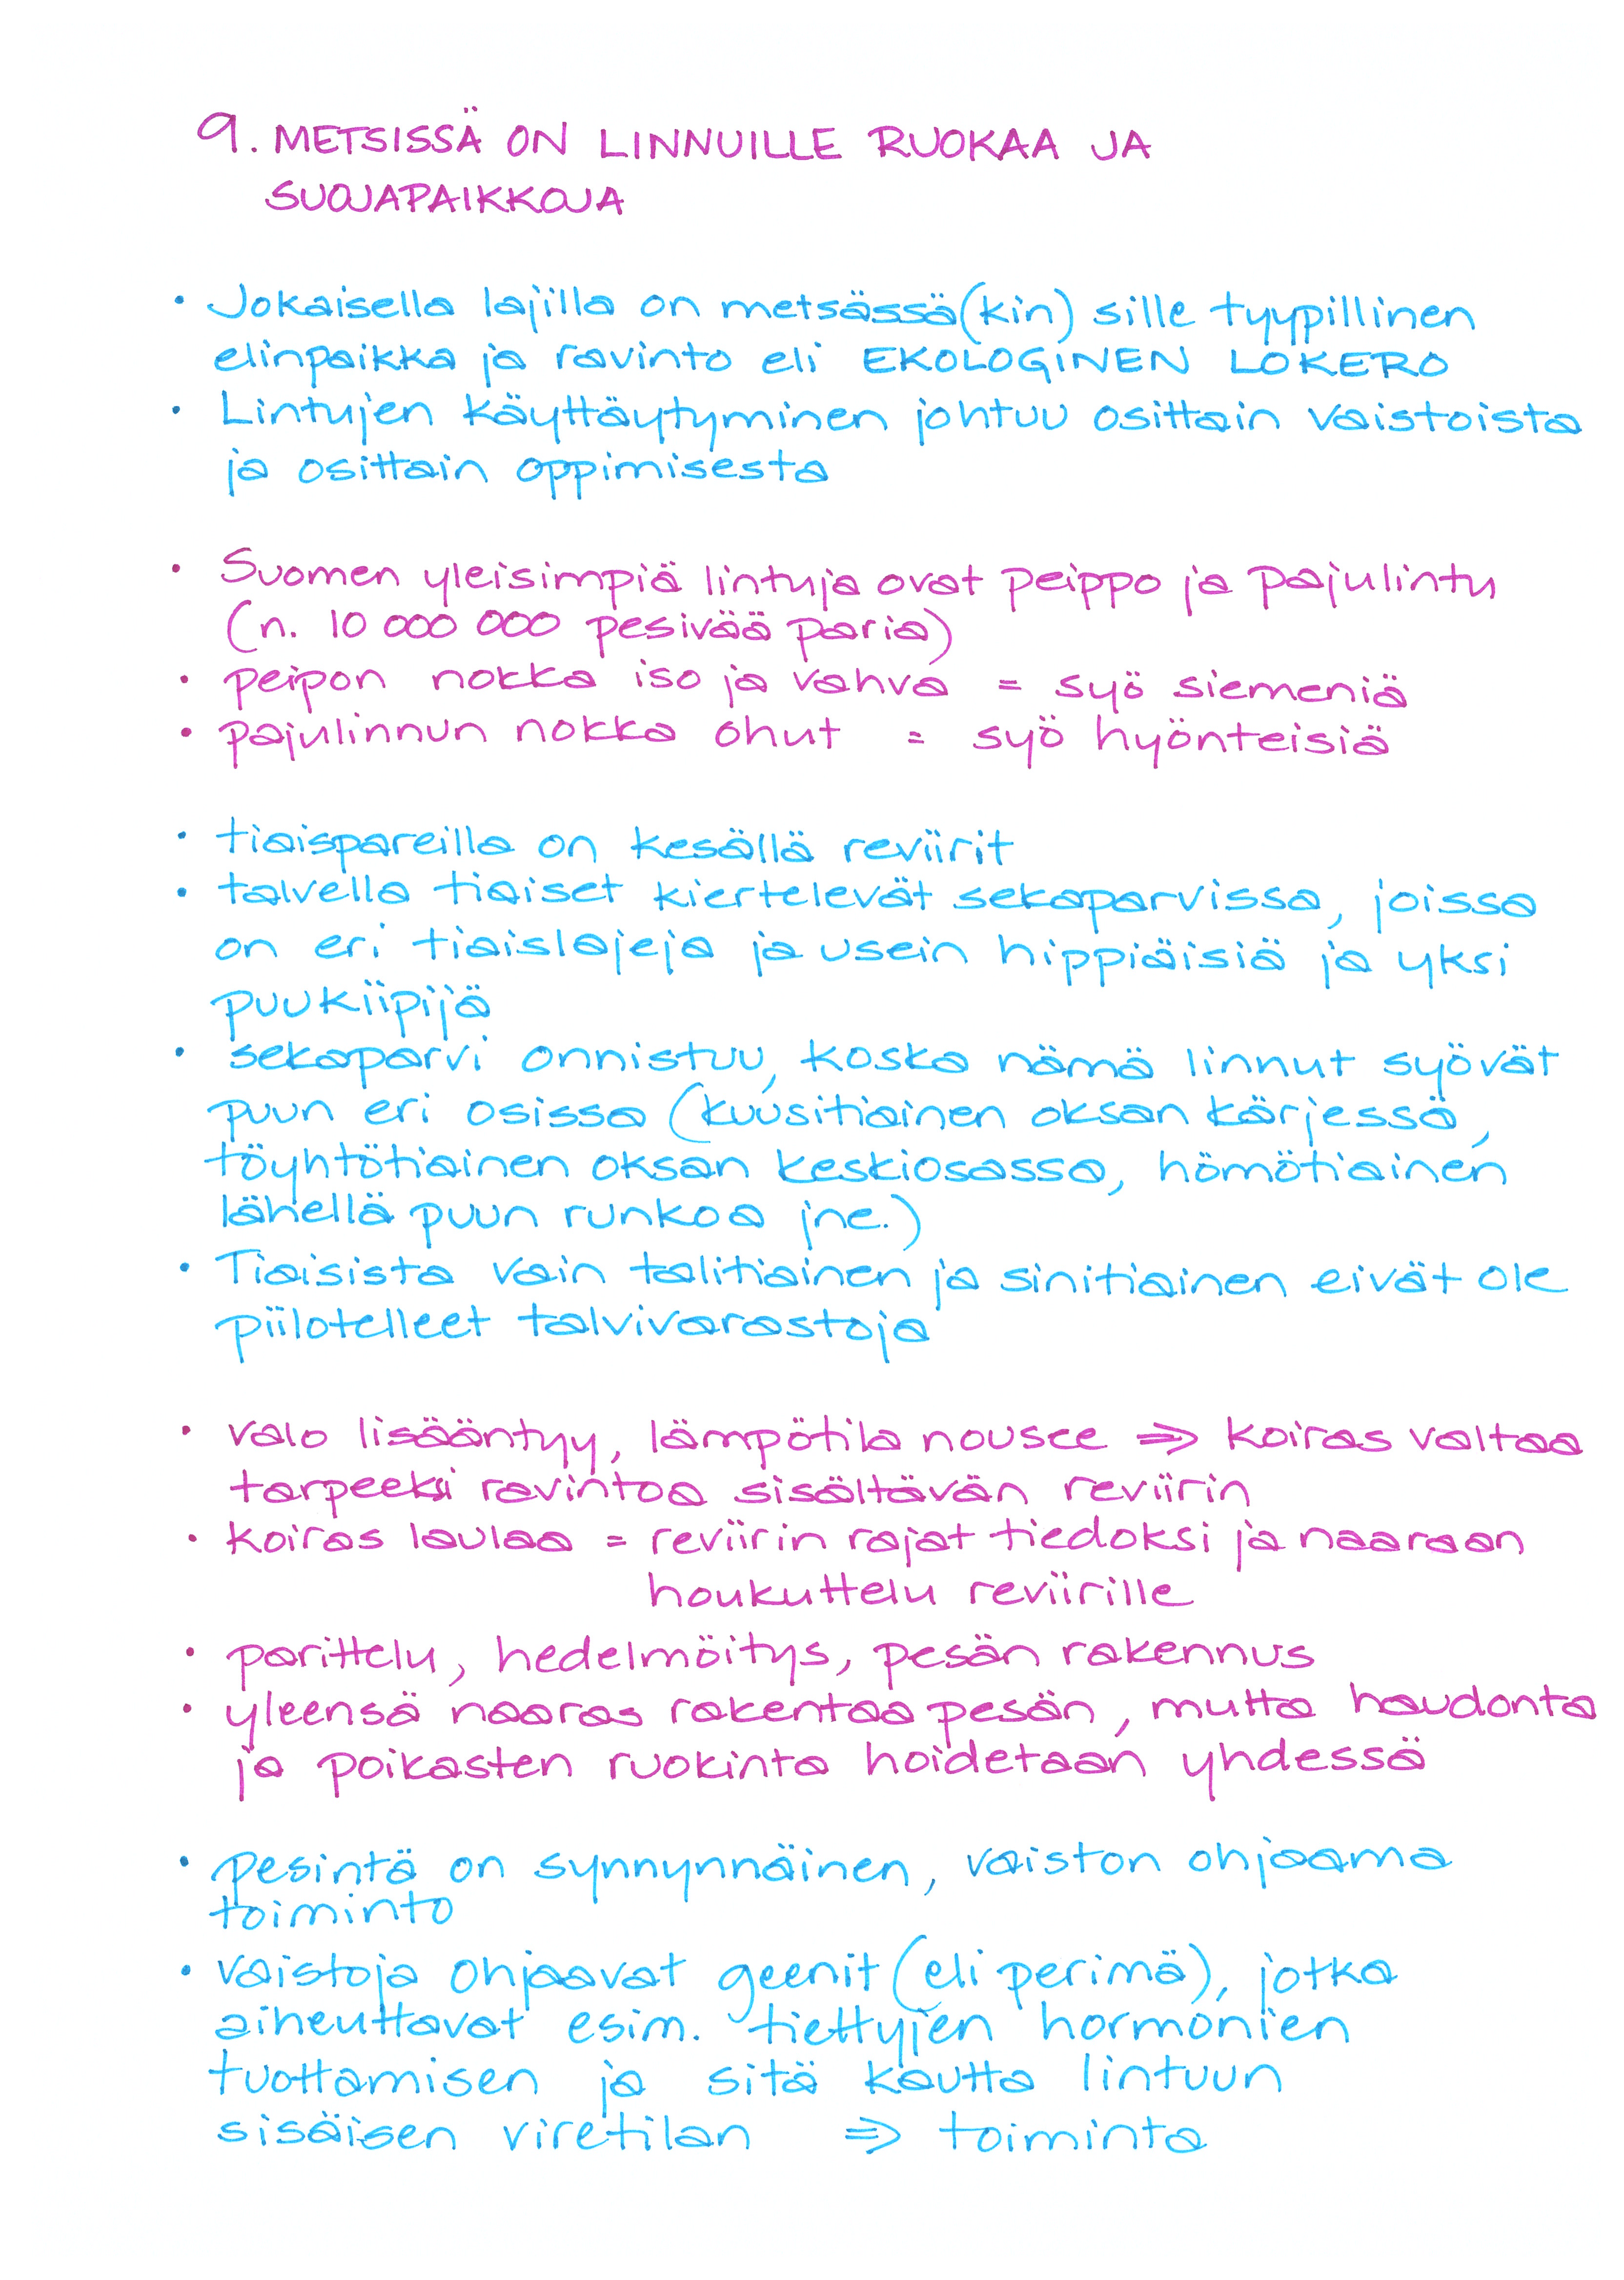 9. METSISSÄ ON LINNUILLE RUOKAA JA
SUOJAPAIKKOJA
• Jokaisella lajilla on metsässä(kin) sille tyypillinen
elinpaikka ja ravinto eli EKOLOGINEN LOKERO
• Lintujen käyttäytyminen johtuu osittain vaistoista
ja osittain oppimisesta
• Suomen yleisimpiä lintuja ovat peippo ja pajulintu
(n. 10 000 000 pesivää paria)
• peipon nokka iso ja vahva = syö siemeniä
• pajulinnun nokka ohut = syö hyönteisiä
• tiaispareilla on kesällä reviirit
• talvella tiaiset kiertelevät sekaparvissa, joissa
on eri tiaislajeja ja usein hippiäisiä ja yksi
puukiipijä
• sekaparvi onnistuu, koska nämä linnut syövät
puun eri osissa (kuusitiainen oksan kärjessä,
töyhtötiainen oksan keskiosassa, hömötiainen
lähellä puun runkoa jne.)
• Tiaisista vain talitiainen ja sinitiainen eivät ole
piilotelleet talvivarastoja
• valo lisääntyy, lämpötila nousee => koiras valtaa
tarpeeksi ravintoa sisältävän reviirin
• koiras laulaa = reviirin rajat tiedoksi ja naaraan
houkuttelu reviirille
• parittelu, hedelmöitys, pesän rakennus
• yleensä naaras rakentaa pesän, mutta haudonta
ja poikasten ruokinta hoidetaan yhdessä
• pesintä on synnynnäinen, vaiston ohjaama
toiminto
• vaistoja ohjaavat geenit (eli perimä), jotka
aiheuttavat esim. tiettyjen hormonien
tuottamisen ja sitä kautta lintuun
sisäisen viretilan => toiminta